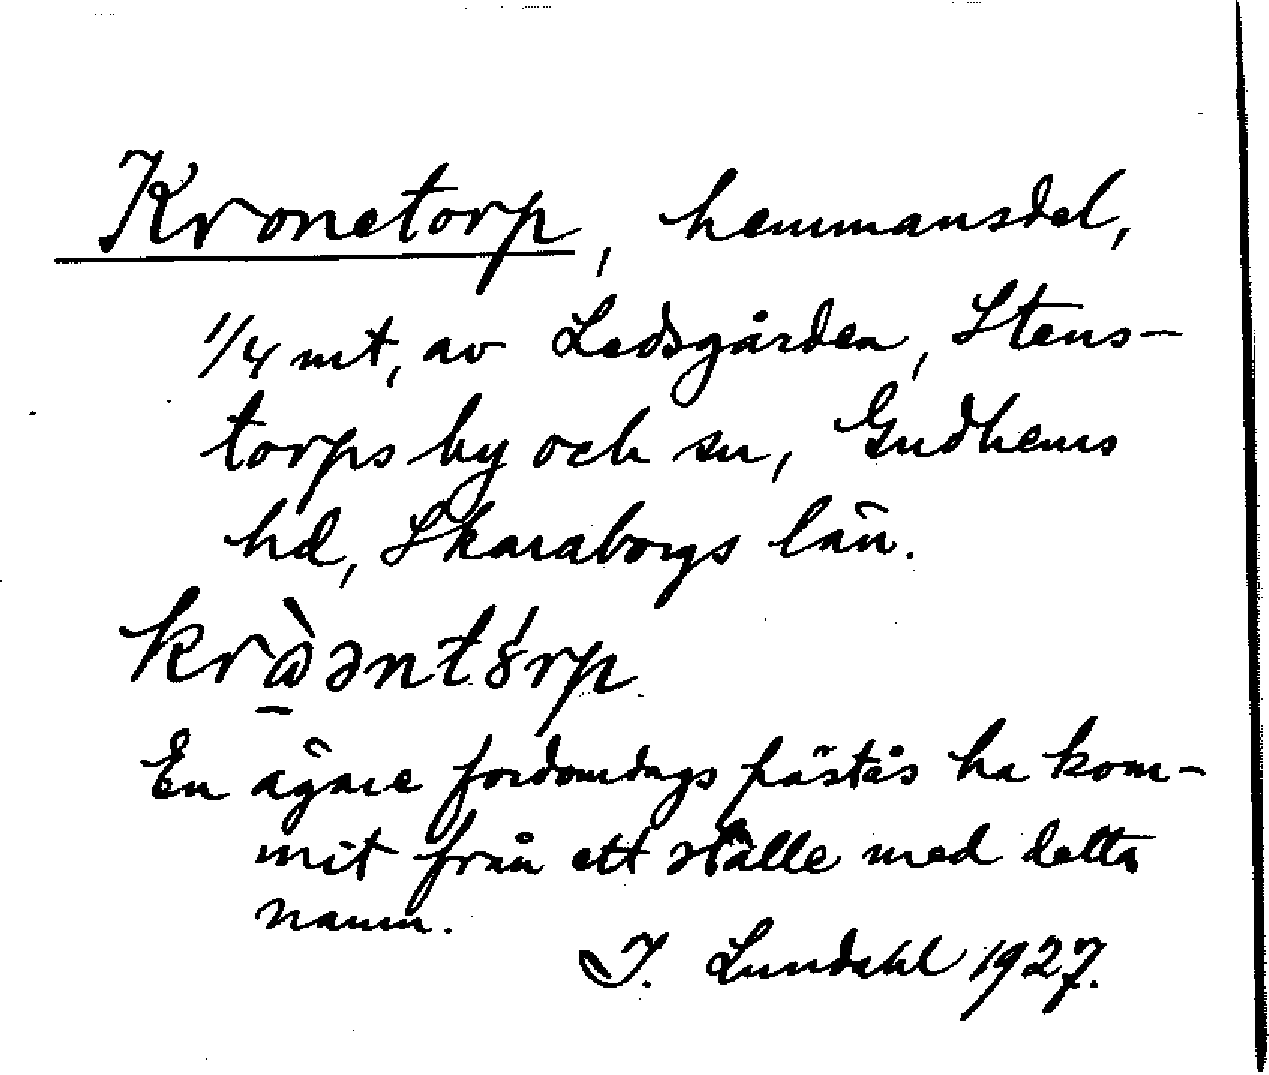 Kronetorp, hemmansdel,
1/4 mt, av Ledsgården, Stens-
torps by och sn, Gudhems
hd, Skaraborgs län.
En ägare fordomdags påstås ha kom-
mit från ett ställe med detta
namn.
I. Lundahl 1927.